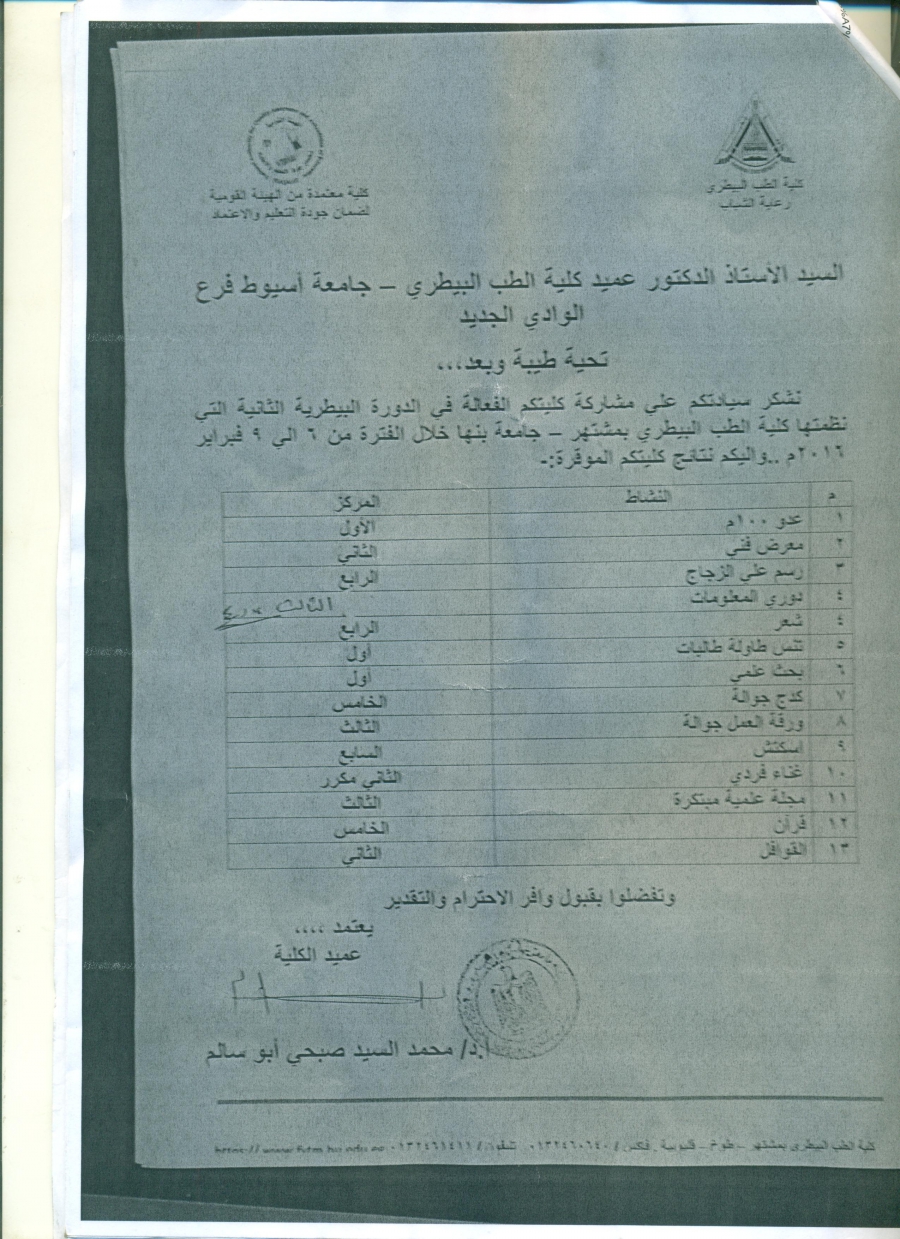 كلية الطب البيطري
رعاية الشباب
كلية معتمدة من الهيئة القومية
لضمان جودة التعليم والاعتماد
السيد الأستاذ الدكتور عميد كلية الطب البيطري – جامعة أسيوط فرع
الوادي الجديد
تحية طيبة وبعد،،،
نشكر سيادتكم علي مشاركة كليتكم الفعالة في الدورة البيطرية الثانية التي
نظمتها كلية الطب البيطري بمشتهر – جامعة بنها خلال الفترة من ٦ الي ٩ فبراير
٢٠١٦م ..واليكم نتائج كليتكم الموقرة:-
م النشاط المركز
١ عدو ١٠٠م الأول
٢ معرض فني الثاني
٣ رسم علي الزجاج الرابع
٤ دوري المعلومات الثالث
٤ شعر الرابع
٥ تنس طاولة طالبات أول
٦ بحث علمي أول
٧ كدج جوالة الخامس
٨ ورقة العمل جوالة الثالث
٩ اسكتش السابع
١٠ غناء فردي الثاني مكرر
١١ مجلة علمية مبتكرة الثالث
١٢ قرآن الخامس
١٣ القوافل الثاني
وتفضلوا بقبول وافر الاحترام والتقدير
يعتمد ،،،،
عميد الكلية
أ.د/ محمد السيد صبحي أبو سالم
كلية الطب البيطرى بمشتهر – طوخ – قليوبية . فاكس / ٠١٣٢٤٦٠٦٤٠ تليفون / ٠١٣٢٤٦١٤١١